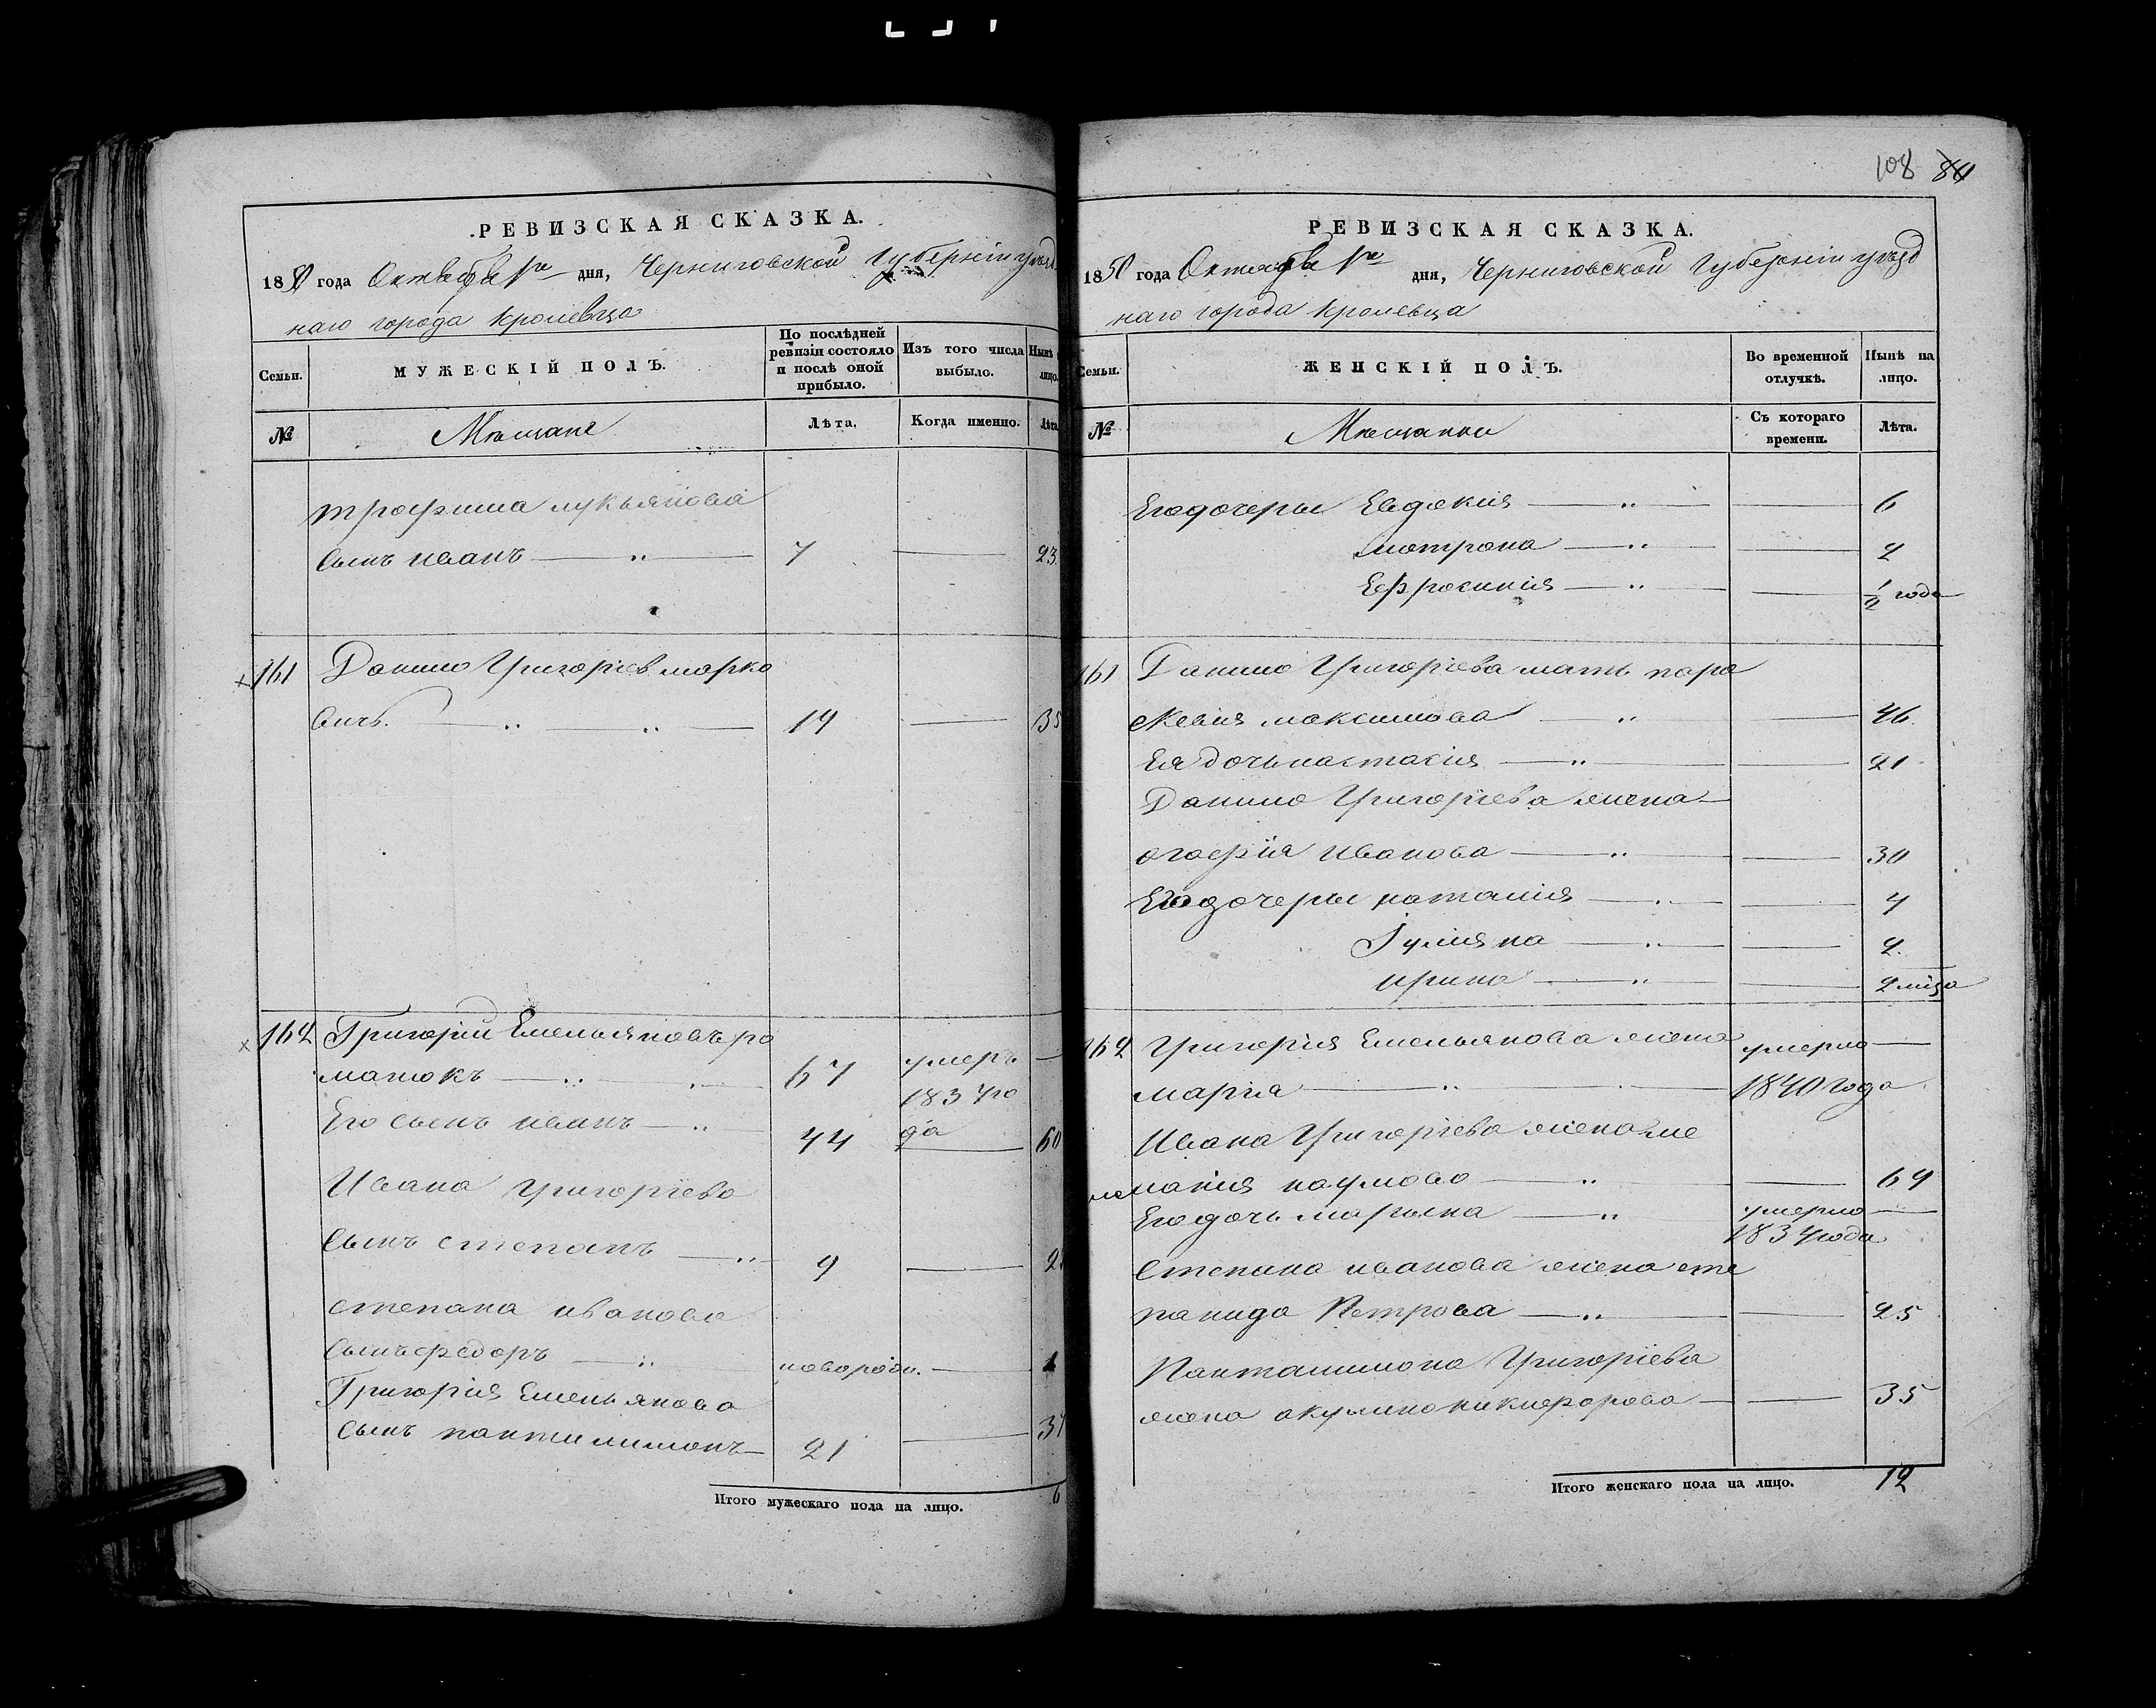 108 80
РЕВИЗСКАЯ СКАЗКА.
1850 года Октября 1го дня, Черниговской Губерніи уѣзд
наго города Кролевца
Семьи.
МУЖЕСКІЙ ПОЛЪ.
По послѣдней ревизіи состояло и послѣ оной прибыло.
Изъ того числа выбыло.
Нынѣ лицо.
№
Мѣщане
Лѣта.
Когда именно.
Лѣта.
трофима лукьянова
сынъ иванъ — " — 7 — 23
161 Данило Григоріев марко
вичъ. — " — " — 19 — 35
162 Григорій Емельяновъ ро
манюкъ — " — 67 умеръ —
1834 го
да
Его сынъ иванъ — " — 44 — 60
Ивана григоріева
сынъ степанъ — " — 9 — 2
степана иванова
сынъ федоръ — " — новорожд. — 1
Григорія Емельянова
сынъ пантилимонъ — 21 — 37
Итого мужескаго пола на лицо. 6
РЕВИЗСКАЯ СКАЗКА.
1850 года Октября 1го дня, Черниговской Губерніи уѣзд
наго города Кролевца
Семьи.
ЖЕНСКІЙ ПОЛЪ.
Во временной отлучкѣ.
Нынѣ на лицо.
№
Мѣщанки
Съ котораго времени.
Лѣта.
Его дочеры Евдокия — " — 6
мотрона — " — 2
Ефросинія — " — 1/2 года
161 Данило Григоріева мать пара
скевия максимова — " — 46
Ея дочь настасия — " — 21
Данило Григоріева жена
агафія иванова — " — 30
Его дочеры наталия — " — 4
Іулияна — " — 2.
ирина — " — 2 міца
162 Григорія Емельянова жена умерла —
марія — " — 1840 года
Ивана Григоріева жена ме
лания наумова — " — 69
Его дочь марьяна — " — умерла —
1834 года
Степана иванова жена сте
панида Петрова — " — 25
Панталимона Григоріева
жена акулина никифорова — 35
Итого женскаго пола на лицо. 12